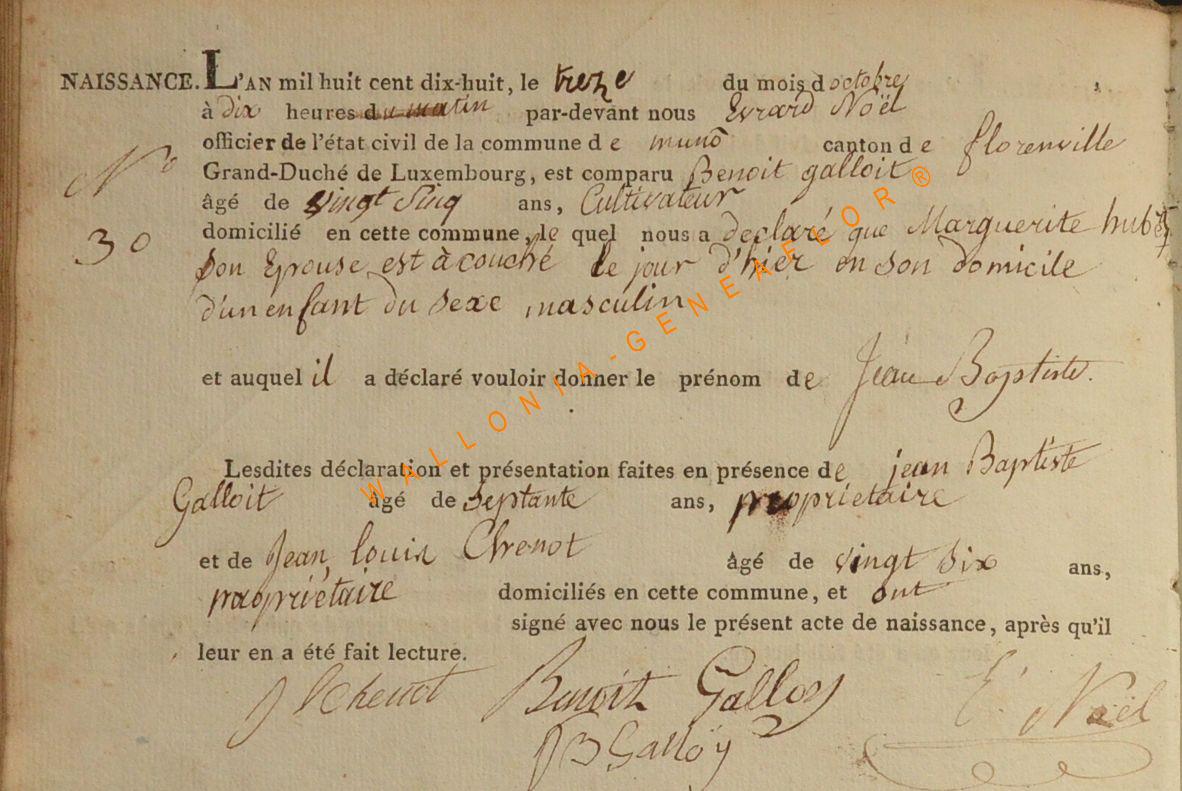 NAISSANCE. L'AN mil huit cent dix-huit, le treze du mois d octobre,
à dix heures du matin par-devant nous Evrard Noël
officier de l'état civil de la commune de muno canton de florenville
N°
Grand-Duché de Luxembourg, est comparu Benoit galloit
âgé de vingt Sinq ans, Cultivateur
30
domicilié en cette commune, le quel nous a declaré que Marguerite hubert
Son Epouse est àcouché le jour d'hier en son domicile
d'un enfant du sexe masculin
et auquel il a déclaré vouloir donner le prénom de Jean Baptiste.
Lesdites déclaration et présentation faites en présence de jean Baptiste
Galloit âgé de Septante ans, proprietaire
et de Jean louis Chenot âgé de vingt Six ans,
propriétaire domiciliés en cette commune, et ont
signé avec nous le présent acte de naissance, après qu'il
leur en a été fait lecture.
J l Chenot Benoit Galloy E. Noël
JB Galloy
WALLONIA-GENEAFLOR®